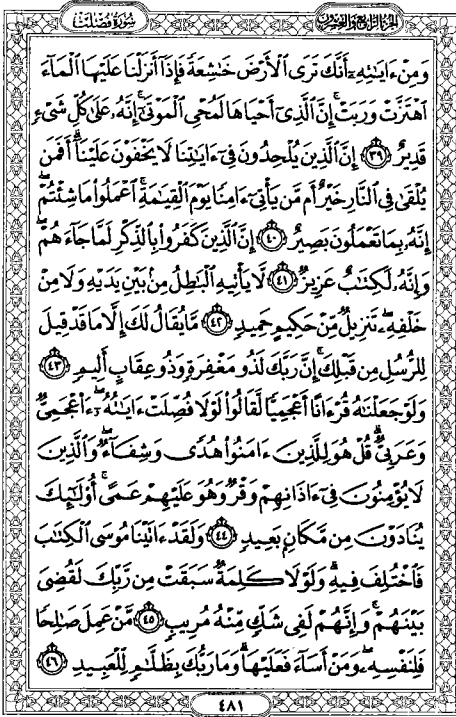 الجزء الرابع والعشرون سورة فصلت
وَمِنْ ءَايَٰتِهِۦٓ أَنَّكَ تَرَى ٱلْأَرْضَ خَٰشِعَةً فَإِذَآ أَنزَلْنَا عَلَيْهَا ٱلْمَآءَ
ٱهْتَزَّتْ وَرَبَتْ ۚ إِنَّ ٱلَّذِىٓ أَحْيَاهَا لَمُحْىِ ٱلْمَوْتَىٰٓ ۚ إِنَّهُۥ عَلَىٰ كُلِّ شَىْءٍ
قَدِيرٌ ٣٩ إِنَّ ٱلَّذِينَ يُلْحِدُونَ فِىٓ ءَايَٰتِنَا لَا يَخْفَوْنَ عَلَيْنَآ ۗ أَفَمَن
يُلْقَىٰ فِى ٱلنَّارِ خَيْرٌ أَم مَّن يَأْتِىٓ ءَامِنًا يَوْمَ ٱلْقِيَٰمَةِ ۚ ٱعْمَلُوا۟ مَا شِئْتُمْ ۖ
إِنَّهُۥ بِمَا تَعْمَلُونَ بَصِيرٌ ٤٠ إِنَّ ٱلَّذِينَ كَفَرُوا۟ بِٱلذِّكْرِ لَمَّا جَآءَهُمْ ۖ
وَإِنَّهُۥ لَكِتَٰبٌ عَزِيزٌ ٤١ لَّا يَأْتِيهِ ٱلْبَٰطِلُ مِنۢ بَيْنِ يَدَيْهِ وَلَا مِنْ
خَلْفِهِۦ ۖ تَنزِيلٌ مِّنْ حَكِيمٍ حَمِيدٍ ٤٢ مَّا يُقَالُ لَكَ إِلَّا مَا قَدْ قِيلَ
لِلرُّسُلِ مِن قَبْلِكَ ۚ إِنَّ رَبَّكَ لَذُو مَغْفِرَةٍ وَذُو عِقَابٍ أَلِيمٍ ٤٣
وَلَوْ جَعَلْنَٰهُ قُرْءَانًا أَعْجَمِيًّا لَّقَالُوا۟ لَوْلَا فُصِّلَتْ ءَايَٰتُهُۥٓ ۖ ءَا۬عْجَمِىٌّ
وَعَرَبِىٌّ ۗ قُلْ هُوَ لِلَّذِينَ ءَامَنُوا۟ هُدًى وَشِفَآءٌ ۖ وَٱلَّذِينَ
لَا يُؤْمِنُونَ فِىٓ ءَاذَانِهِمْ وَقْرٌ وَهُوَ عَلَيْهِمْ عَمًى ۚ أُو۟لَٰٓئِكَ
يُنَادَوْنَ مِن مَّكَانٍۭ بَعِيدٍ ٤٤ وَلَقَدْ ءَاتَيْنَا مُوسَى ٱلْكِتَٰبَ
فَٱخْتُلِفَ فِيهِ ۗ وَلَوْلَا كَلِمَةٌ سَبَقَتْ مِن رَّبِّكَ لَقُضِىَ
بَيْنَهُمْ ۚ وَإِنَّهُمْ لَفِى شَكٍّ مِّنْهُ مُرِيبٍ ٤٥ مَّنْ عَمِلَ صَٰلِحًا
فَلِنَفْسِهِۦ ۖ وَمَنْ أَسَآءَ فَعَلَيْهَا ۗ وَمَا رَبُّكَ بِظَلَّٰمٍ لِّلْعَبِيدِ ٤٦
٤٨١